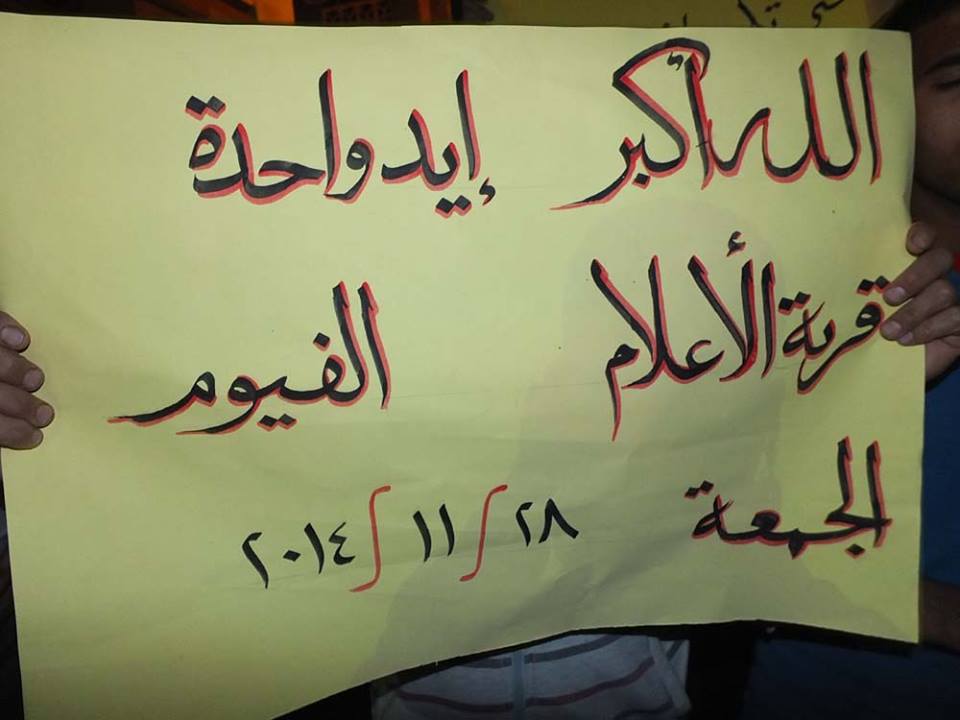 الله أكبر إيد واحدة
قرية الأعلام الفيوم
الجمعة ٢٨/١١/٢٠١٤